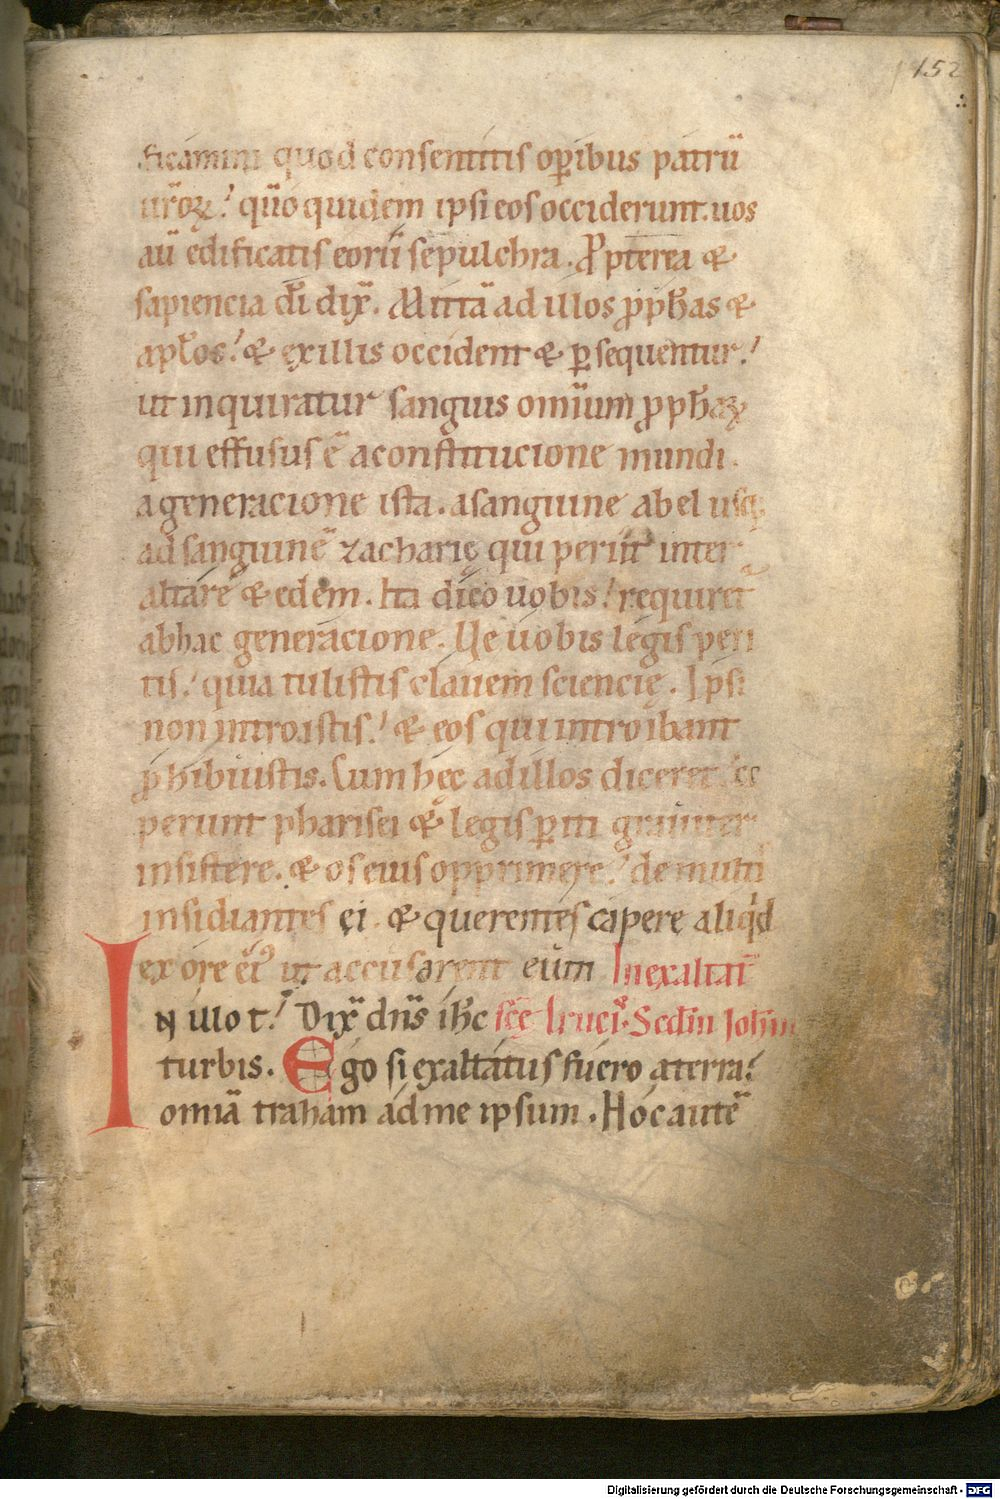 152
ficamini quod consentitis oꝑibus patrū
ur̄oꝝ! qūo quidem ipsi eos occiderunt. uos
aū edificatis eorū sepulchra. Ꝓpterea &
sapiencia dī dix̄. Mittā ad illos ꝓph̄as &
apl̄os! & ex illis occident & ꝑsequentur!
ut inquiratur sanguis omīum ꝓph̄aꝝ
qui effusus ē a constitucione mundi.
a generacione ista. a sanguine abel usqꝫ
ad sanguinē zacharię qui periit inter
altare & edem. Ita dico uobis! requiret᷑
ab hac generacione. Ue uobis legis peri
tis! quia tulistis clauem sciencię. Ipsi
non introistis! & eos qui introibant
ꝓhibuistis. Cum hęc ad illos diceret! ce
perunt pharisei & legis ꝑiti grauiter
insistere. & os eius opprimere! de multis
insidiantes ei. & querentes capere aliqͥd
ex ore eiꝰ ut accusarent eum In exaltat̄
IN illo t̄! Dix̄ dn̄s ih̄c sc̄ę crucis. Scd̄m Joh̄m
turbis. Ego si exaltatus fuero a terra!
omīa traham ad me ipsum. Hoc autē
Digitalisierung gefördert durch die Deutsche Forschungsgemeinschaft - DFG